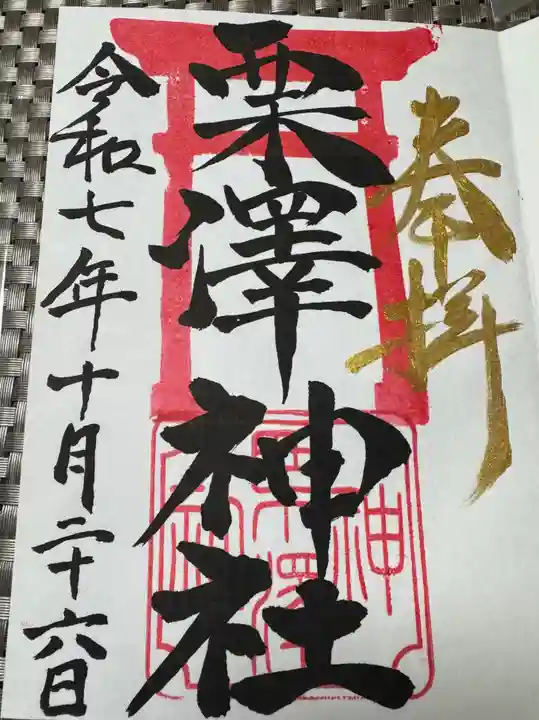 奉拝
栗澤神社
令和七年十月二十六日